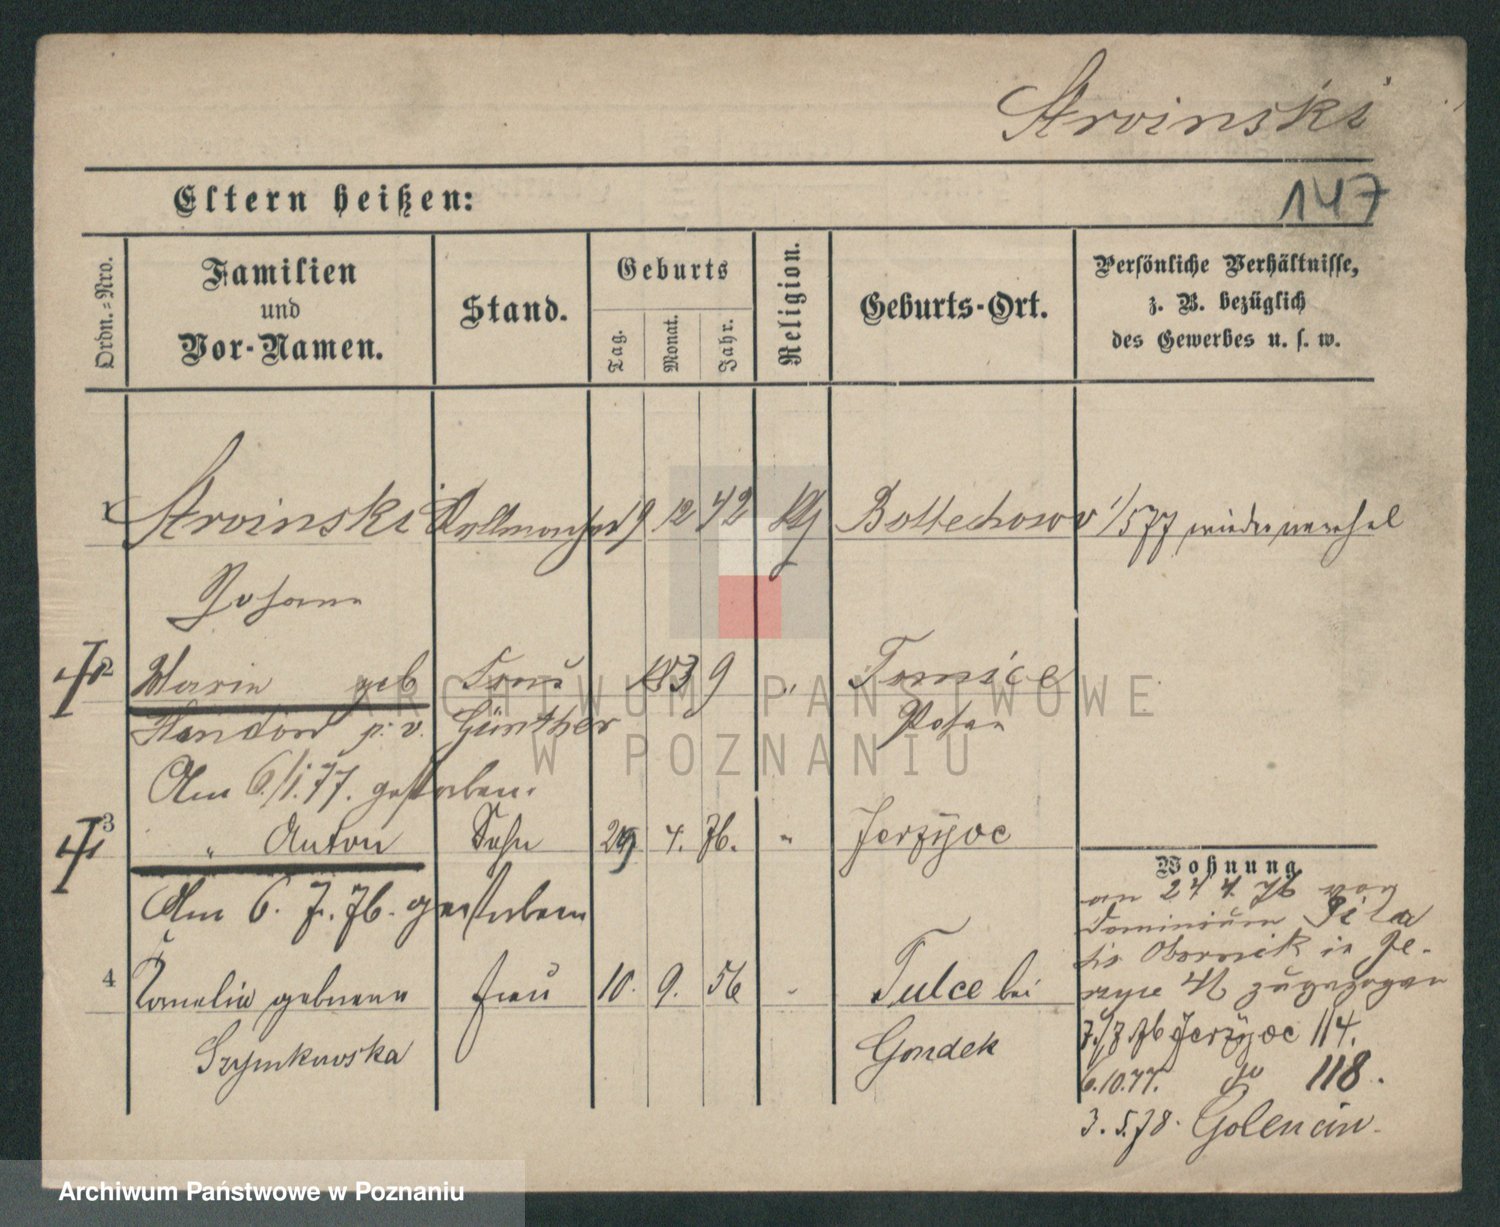 Stroinski
147
Eltern heißen:
Ordn.-Nro.
Familien
und
Vor-Namen.
Stand.
Geburts
Tag.
Monat.
Jahr.
Religion.
Geburts-Ort.
Persönliche Verhältnisse,
z. B. bezüglich
des Gewerbes u. s. w.
1 Stroinski 19 12 42 Bottechowo 1/5 77
Johann
2 Marie geb Frau 1839 " Tomice
p. v. Günther Posen
Am 6/1.77. gestorben.
3 " Anton Sohn 29 4. 76. " Jerzyce
Am 6. 7. 76. gestorben
4 Kornelia geborene Frau 10. 9. 56 " Tulce bei
Szymkowska Gondek
Wohnung
am 24 4 76 von
Dominium Pila
bis Obornik in Je-
rzyce zugezogen
7/7 76 Jerzyce 114.
6.10.77. do 118.
3. 5. 78. Golencin.
ARCHIWUM PAŃSTWOWE
W POZNANIU
Archiwum Państwowe w Poznaniu